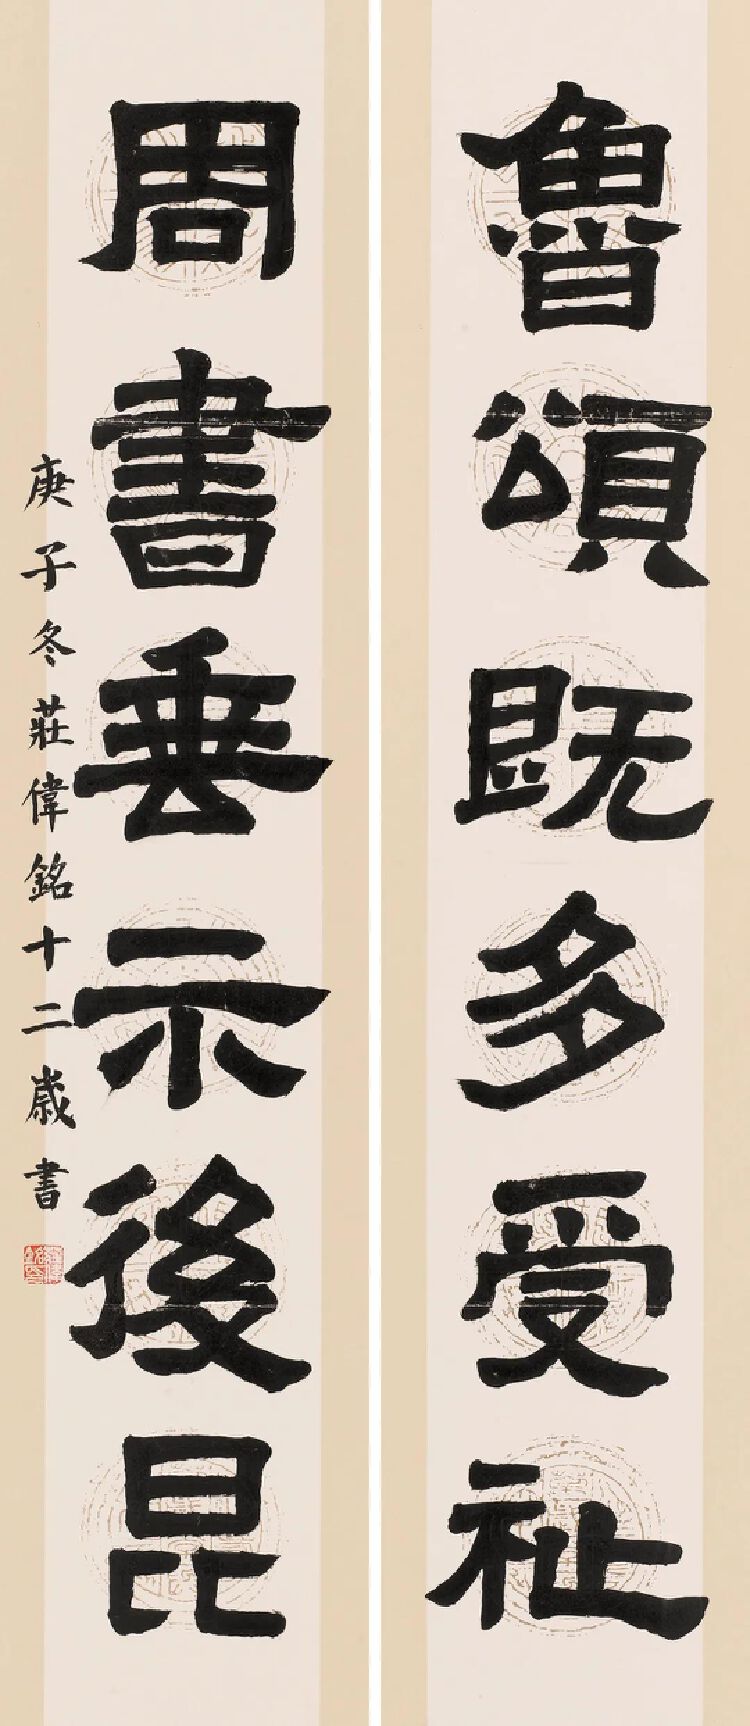 魯頌既多受祉
周書垂示後昆
庚子冬莊偉銘十二歲書